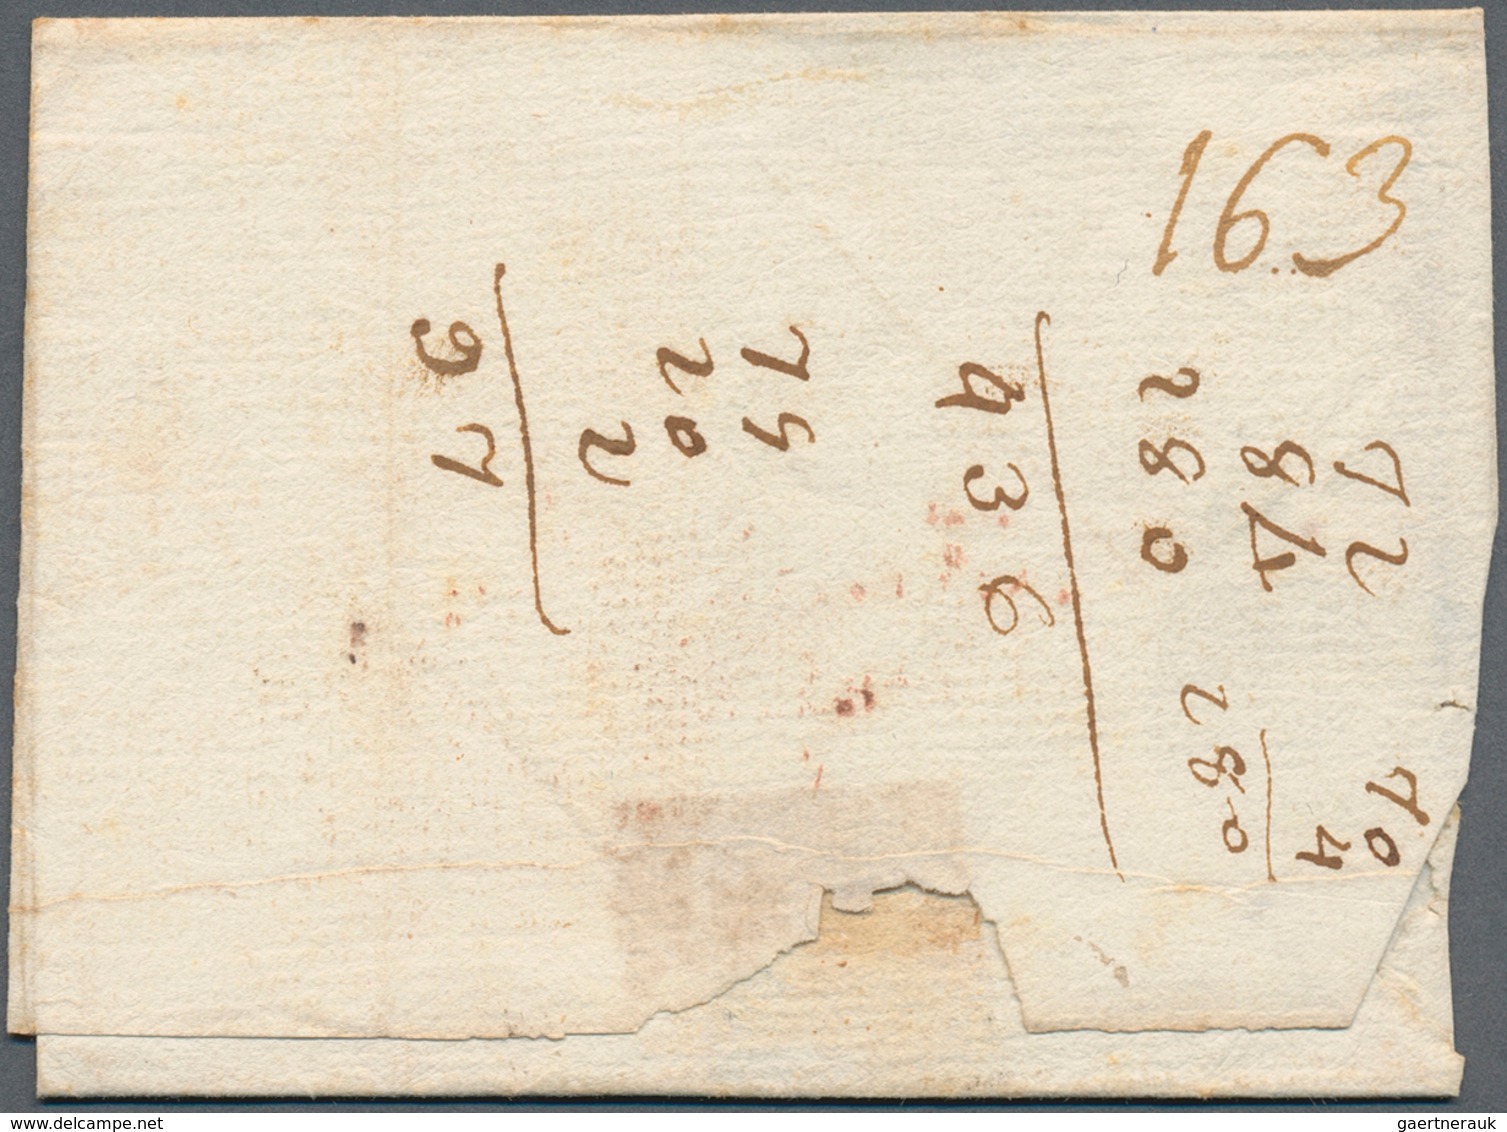 163
72
84
280
436
70
4
280
75
20
2
97
gaertnerauk